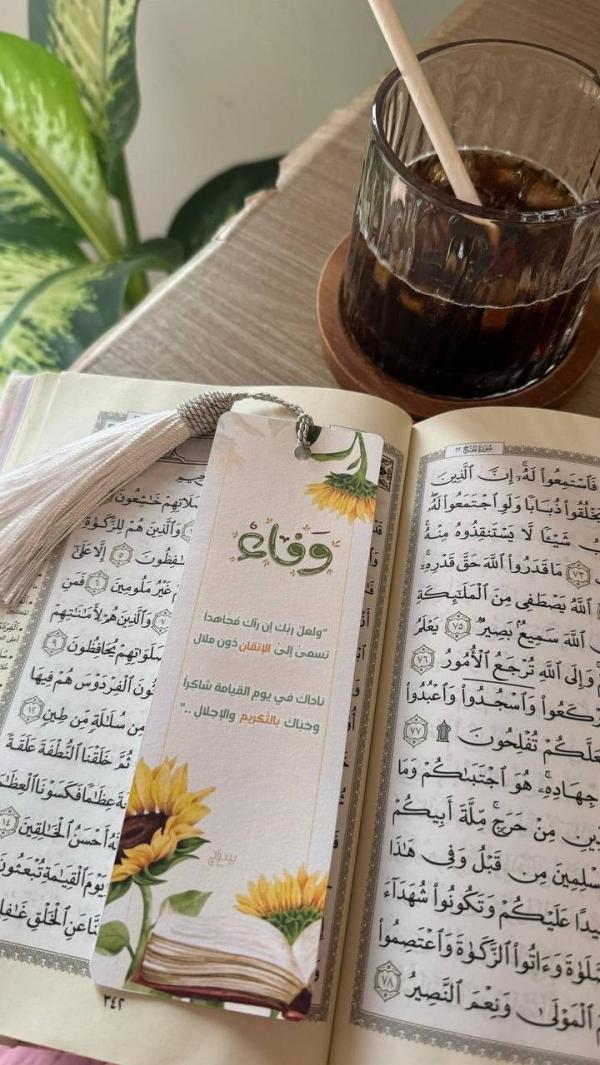 وَفَاءْ
"ولعلّ ربّك إن رآك مُجاهداً
تسعى إلىٰ الإتقان دُون ملال
ناداكَ في يوم القيامة شاكراً
وحباك بالتّكريم والإجلال .."
سُورَةُ الحَجِّ ٢٢
فَٱسْتَمِعُوا۟ لَهُۥٓ إِنَّ ٱلَّذِينَ
يَخْلُقُوا۟ ذُبَابًا وَلَوِ ٱجْتَمَعُوا۟ لَهُۥ
شَيْـًٔا لَّا يَسْتَنقِذُوهُ مِنْهُ
٧٣ مَا قَدَرُوا۟ ٱللَّهَ حَقَّ قَدْرِهِۦٓ
ٱللَّهُ يَصْطَفِى مِنَ ٱلْمَلَٰٓئِكَةِ
ٱللَّهَ سَمِيعٌۢ بَصِيرٌ ٧٥ يَعْلَمُ
وَإِلَى ٱللَّهِ تُرْجَعُ ٱلْأُمُورُ ٧٦
ٱرْكَعُوا۟ وَٱسْجُدُوا۟ وَٱعْبُدُوا۟
لَعَلَّكُمْ تُفْلِحُونَ ۩ ٧٧
جِهَادِهِۦ هُوَ ٱجْتَبَىٰكُمْ وَمَا
مِنْ حَرَجٍ مِّلَّةَ أَبِيكُمْ
مِن قَبْلُ وَفِى هَٰذَا
عَلَيْكُمْ وَتَكُونُوا۟ شُهَدَآءَ
وَءَاتُوا۟ ٱلزَّكَوٰةَ وَٱعْتَصِمُوا۟
ٱلْمَوْلَىٰ وَنِعْمَ ٱلنَّصِيرُ ٧٨
صَلَاتِهِمْ خَٰشِعُونَ
وَٱلَّذِينَ هُمْ لِلزَّكَوٰةِ
حَٰفِظُونَ ٥ إِلَّا عَلَىٰٓ
غَيْرُ مَلُومِينَ ٦ فَمَنِ
٧ وَٱلَّذِينَ هُمْ لِأَمَٰنَٰتِهِمْ
صَلَوَٰتِهِمْ يُحَافِظُونَ ٩
ٱلْفِرْدَوْسَ هُمْ فِيهَا
مِن سُلَٰلَةٍ مِّن طِينٍ ١٢
ثُمَّ خَلَقْنَا ٱلنُّطْفَةَ عَلَقَةً
عِظَٰمًا فَكَسَوْنَا ٱلْعِظَٰمَ
أَحْسَنُ ٱلْخَٰلِقِينَ ١٤
يَوْمَ ٱلْقِيَٰمَةِ تُبْعَثُونَ
عَنِ ٱلْخَلْقِ غَٰفِلِينَ
٣٤٢